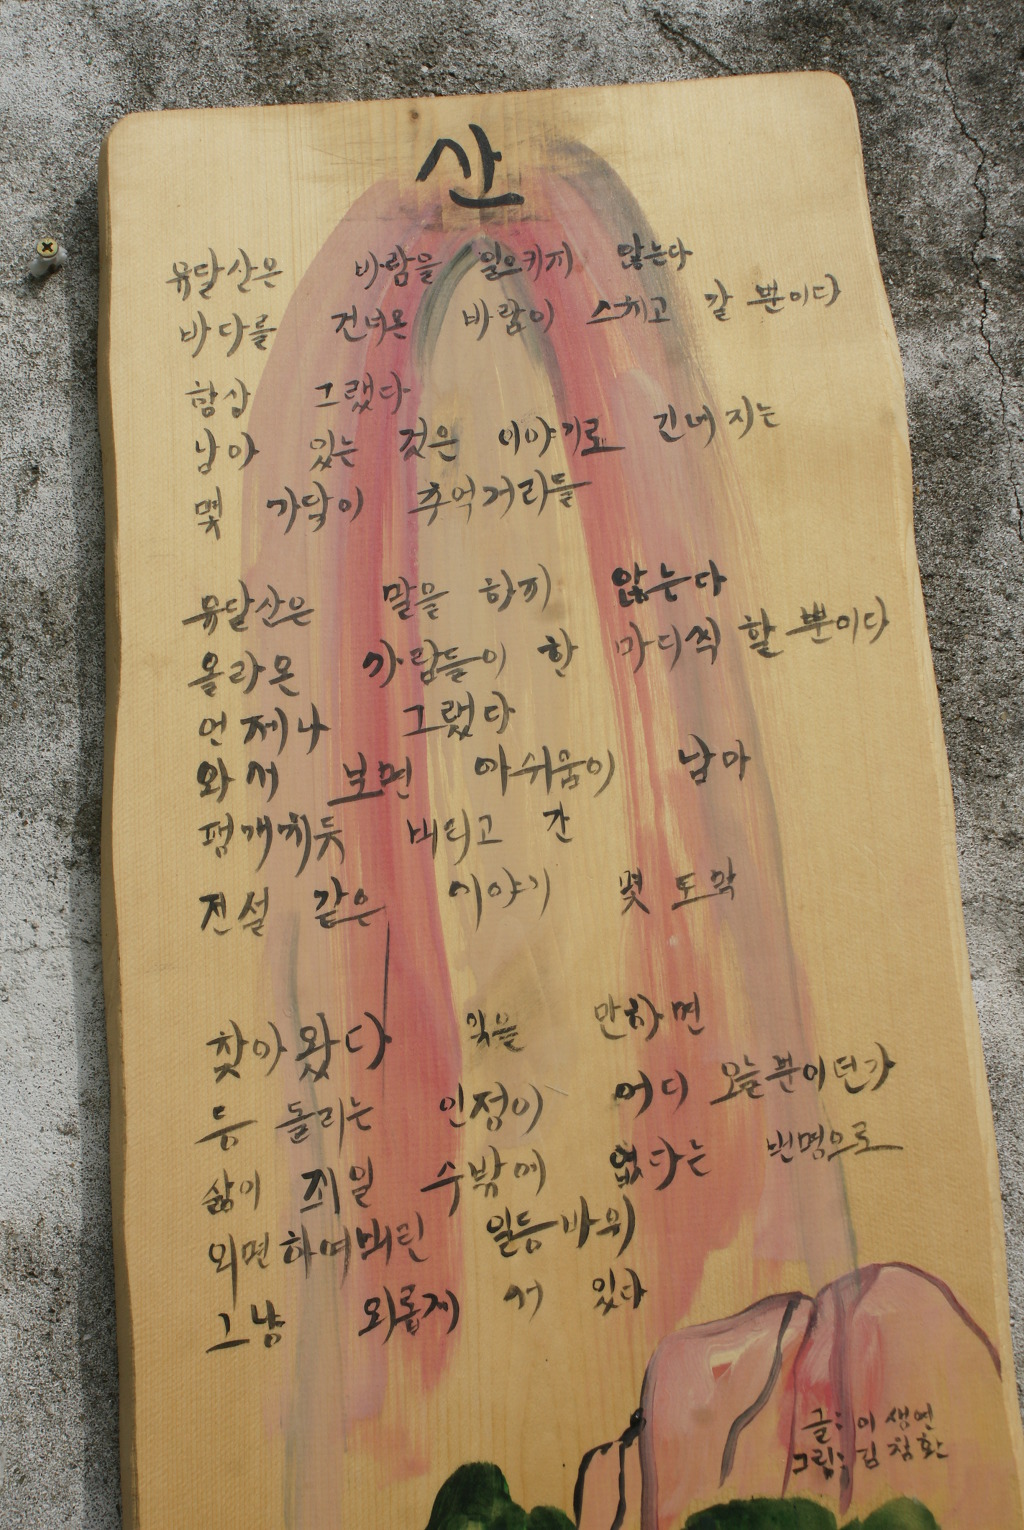 산
유달산은 바람을 일으키지 않는다
바다를 건너온 바람이 스치고 갈 뿐이다
항상 그랬다
남아 있는 것은 이야기로 건네지는
몇 가닥이 추억거리들
유달산은 말을 하지 않는다
올라온 사람들이 한 마디씩 할 뿐이다
언제나 그랬다
와서 보면 아쉬움이 남아
팽개치듯 버리고 간
전설 같은 이야기 몇 도막
찾아왔다 잊을 만하면
등 돌리는 인정이 어디 오늘뿐이던가
삶이 죄일 수밖에 없다는 변명으로
외면하여버린 일등바위
그냥 외롭게 서 있다
글: 이생연
그림: 김